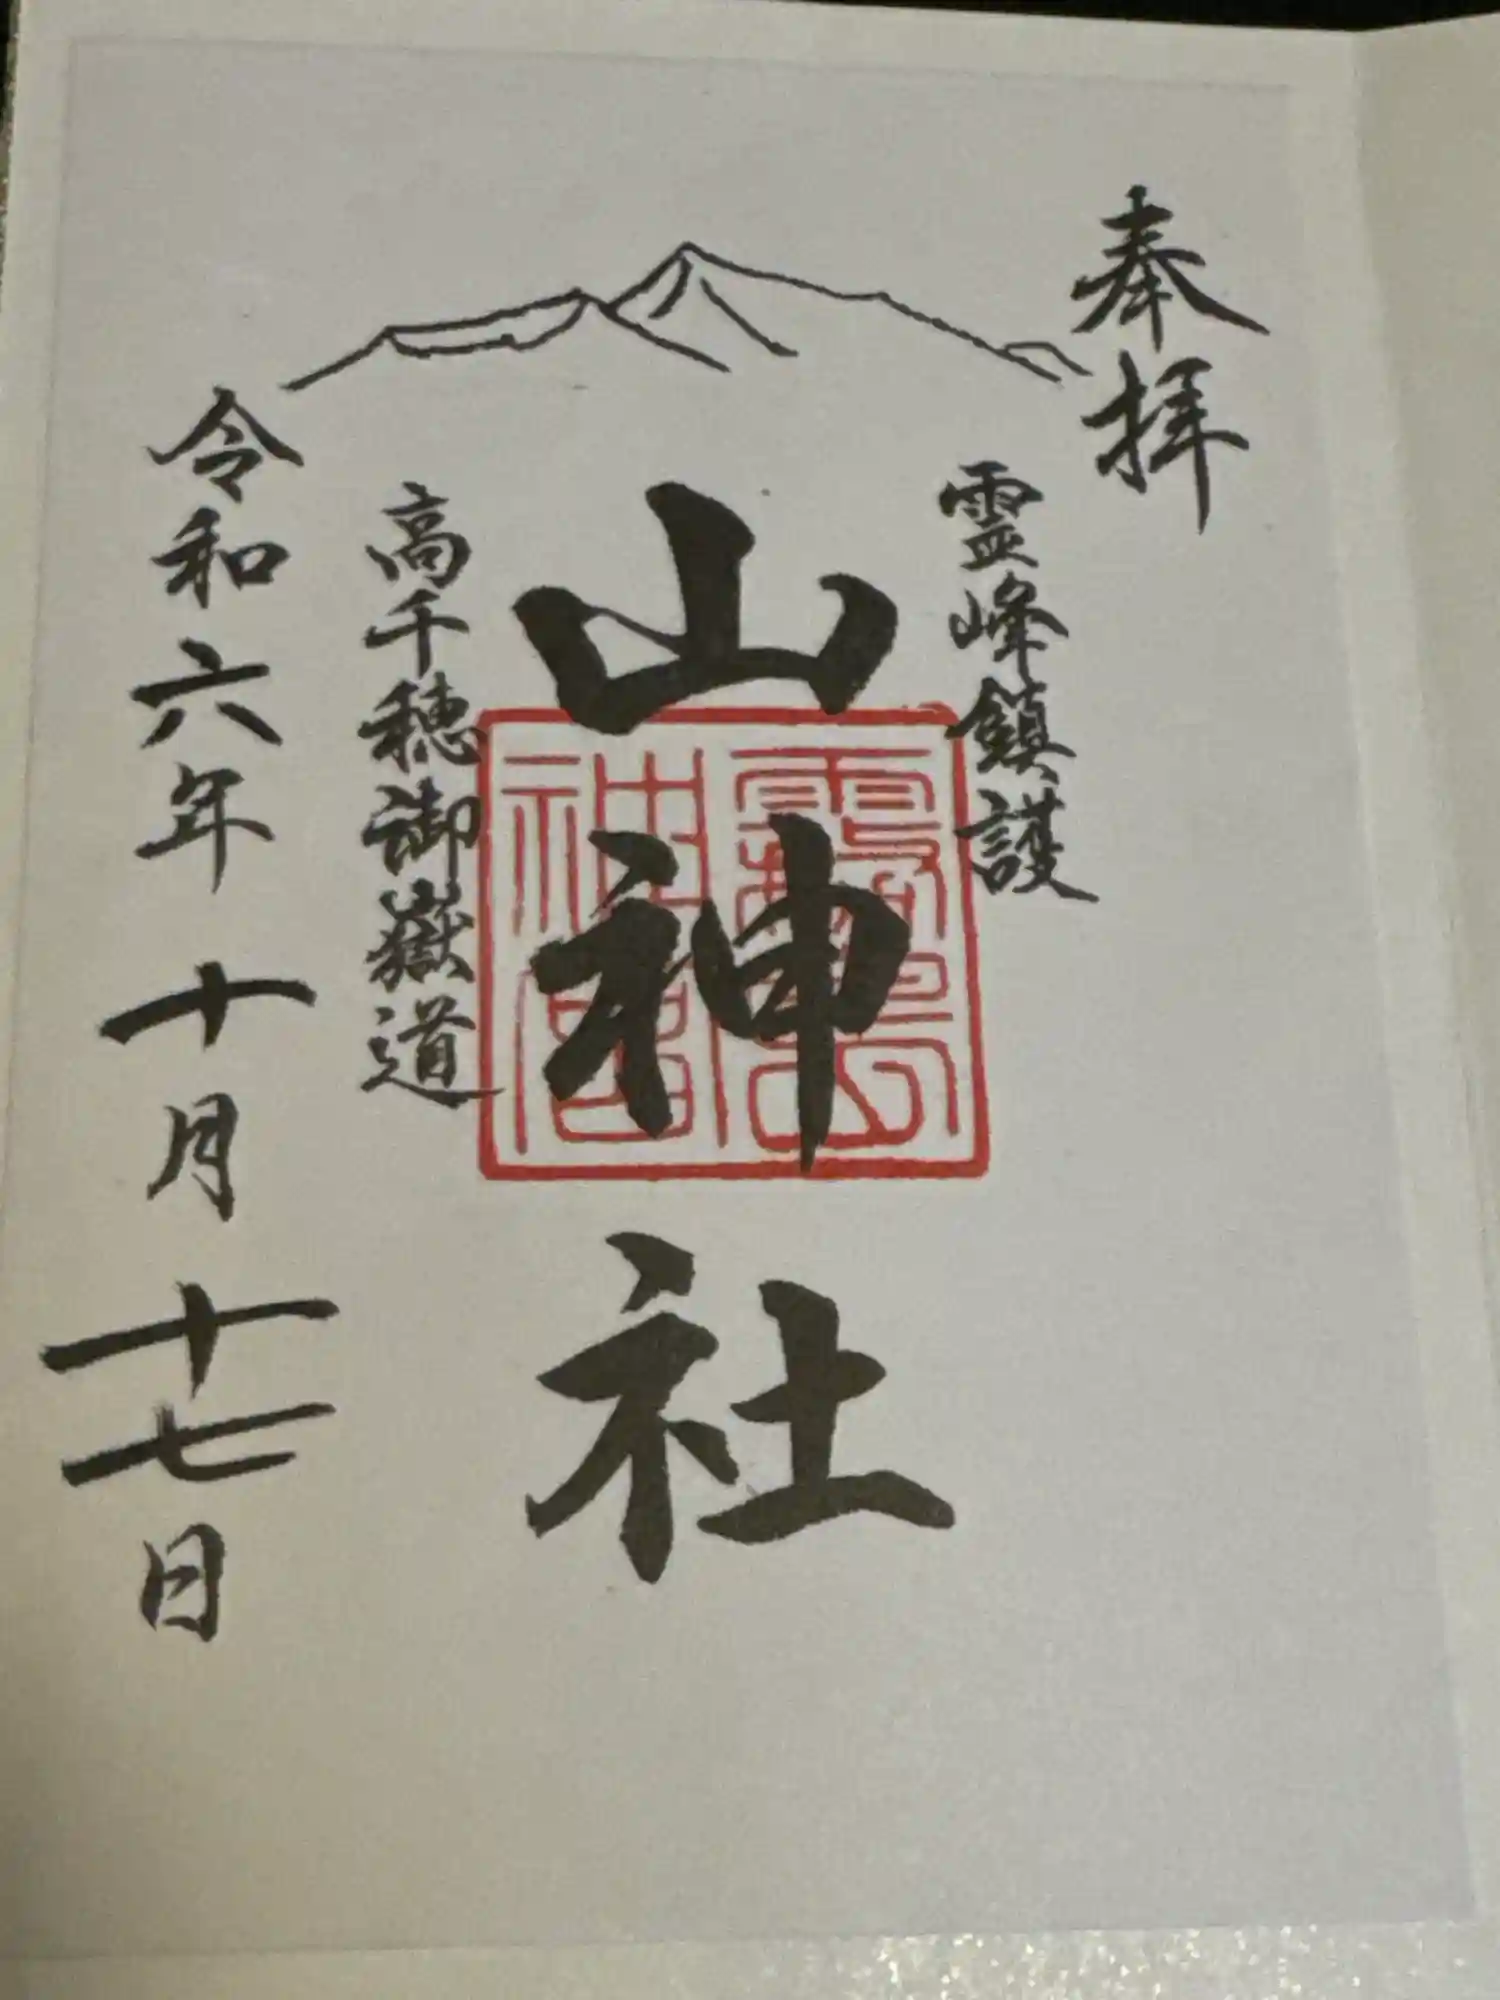 奉拝
霊峰鎮護
山神社
霧島
神宮
高千穂御嶽道
令和六年十月十七日